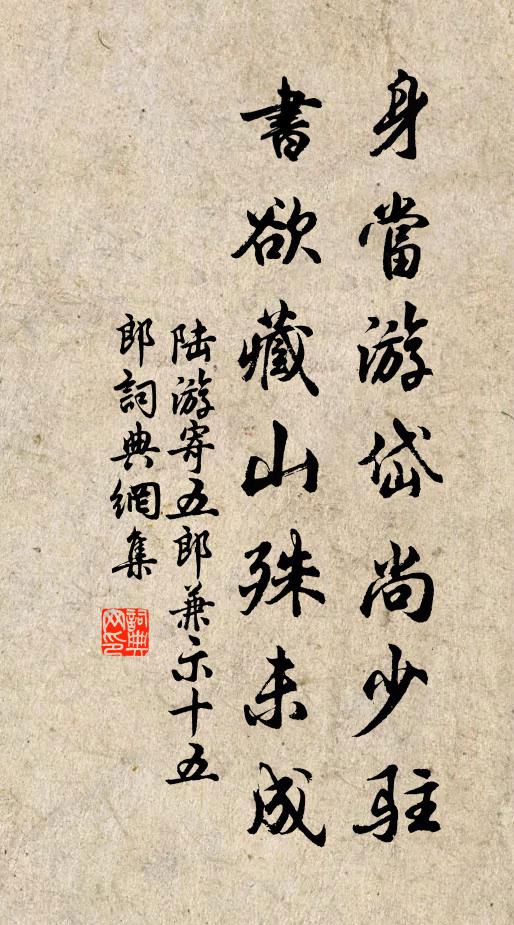 身當游岱尚少駐
書欲藏山殊未成
陆游寄五郎兼示十五
郎詞典網集
詞典网印